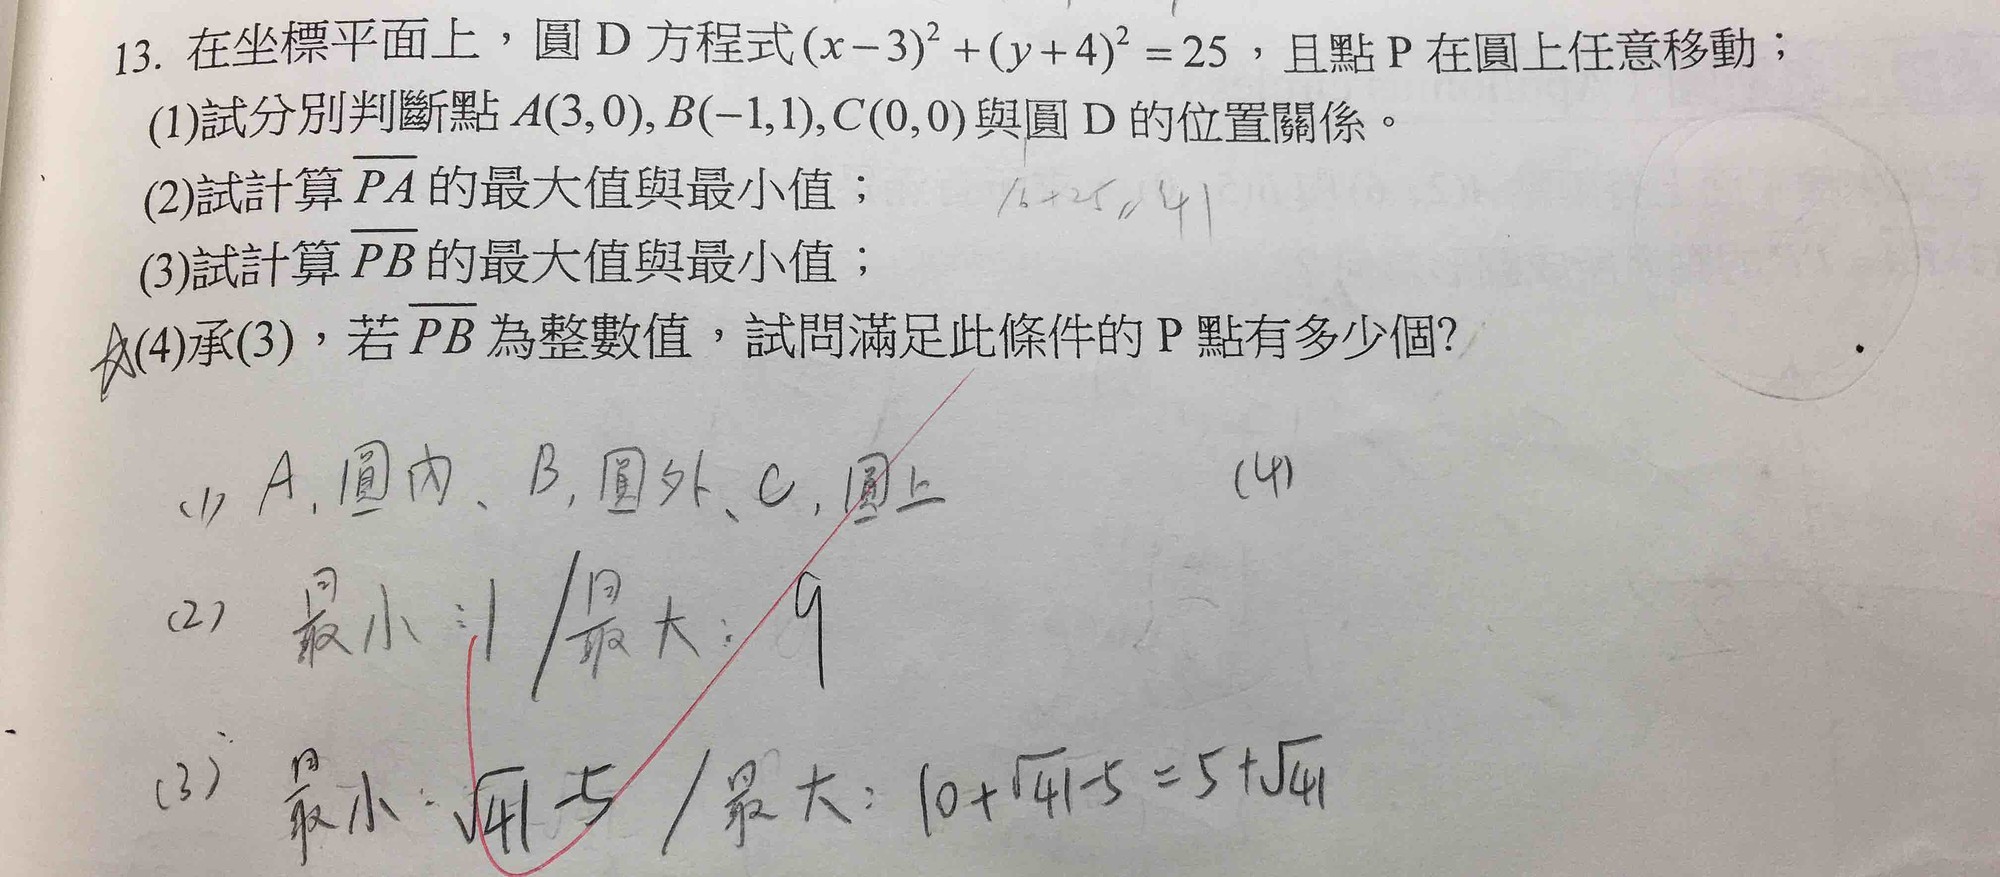 13. 在坐標平面上，圓 D 方程式 (x−3)² + (y+4)² = 25，且點 P 在圓上任意移動；
(1)試分別判斷點 A(3,0), B(−1,1), C(0,0) 與圓 D 的位置關係。
(2)試計算 \overline{PA} 的最大值與最小值；
16+25=41
(3)試計算 \overline{PB} 的最大值與最小值；
☆(4)承(3)，若 \overline{PB} 為整數值，試問滿足此條件的 P 點有多少個?
(1) A, 圓內、B, 圓外、C, 圓上
(4)
(2) 最小：1 / 最大：9
(3) 最小：√41 -5 / 最大：10+√41-5 = 5+√41